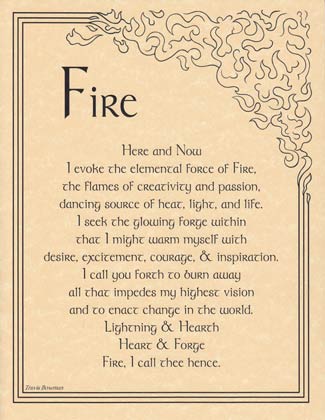 Fire
Here and Now
I evoke the elemental force of Fire,
the flames of creativity and passion,
dancing source of heat, light, and life.
I seek the glowing forge within
that I might warm myself with
desire, excitement, courage, & inspiration.
I call you forth to burn away
all that impedes my highest vision
and to enact change in the world.
Lightning & Hearth
Heart & Forge
Fire, I call thee hence.
Travis Bowman